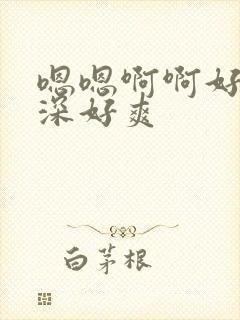 嗯嗯啊啊好
深好爽
白茅根